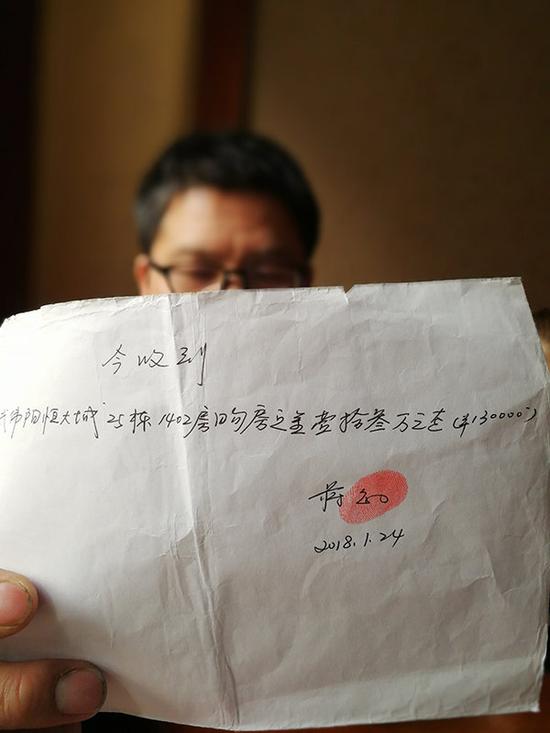 今收到
阳恒大城25栋1402房购房定金壹拾叁万元整(¥130000)
蒋
2018.1.24